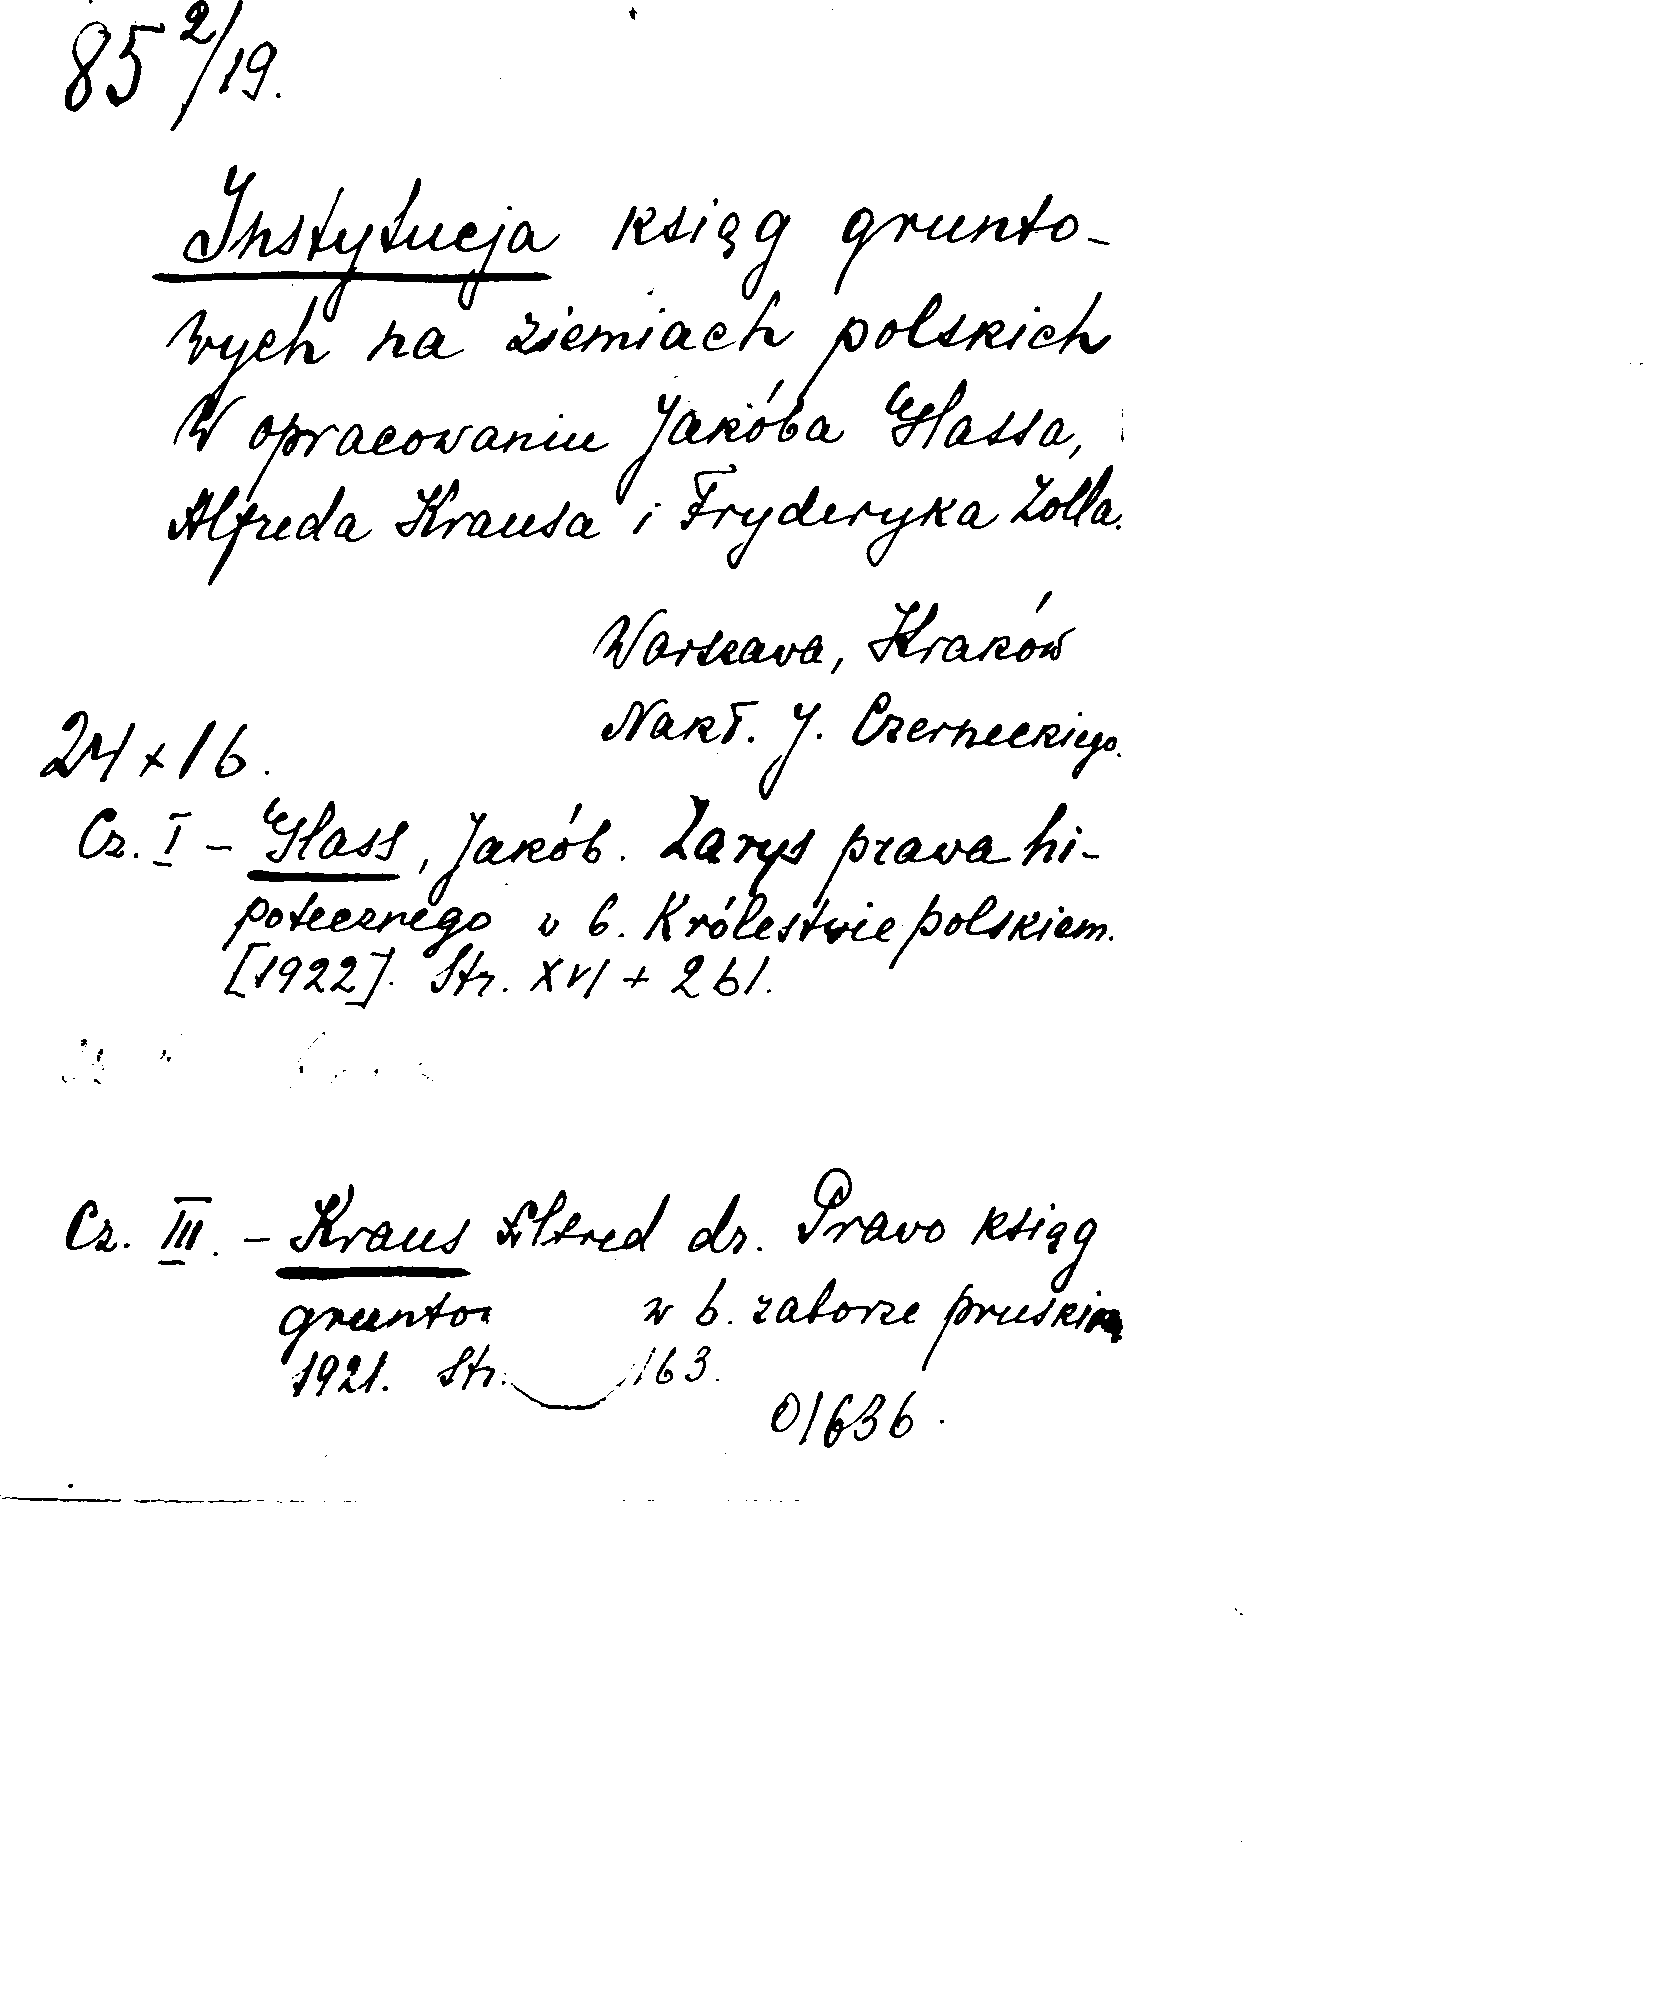 85 2/19.
Instytucja ksiąg grunto-
wych na ziemiach polskich
W opracowaniu Jakóba Glassa,
Alfreda Krausa i Fryderyka Zolla.
Warszawa, Kraków
Nakł. J. Czerneckiego.
24 x 16.
Cz. I - Glass, Jakób. Zarys prawa hi-
potecznego w b. Królestwie polskiem.
[1922]. Str. XVI + 261.
Cz. III. - Kraus Alfred dr. Prawo ksiąg
grunto w b. zaborze pruskim
1921. Str. 163.
01636.